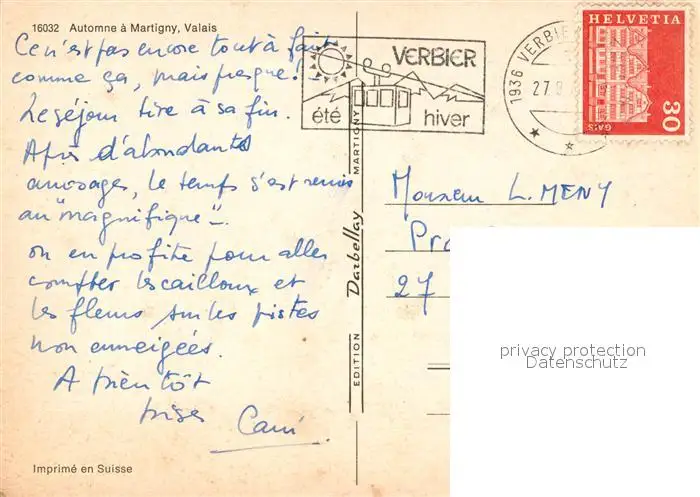 16032 Automne à Martigny, Valais
Ce n'est pas encore tout à fait
comme ça, mais presque!
Le séjour tire à sa fin.
Après d'abondants
arrosages, le temps s'est remis
au "magnifique".
on en profite pour aller
compter les cailloux et
les fleurs sur les pistes
non enneigées.
A bientôt
bises
Imprimé en Suisse
EDITION Darbellay MARTIGNY
VERBIER
été hiver
1936 VERBIER
27
HELVETIA
30
GAIS
Monsieur L. MENY
27
privacy protection
Datenschutz